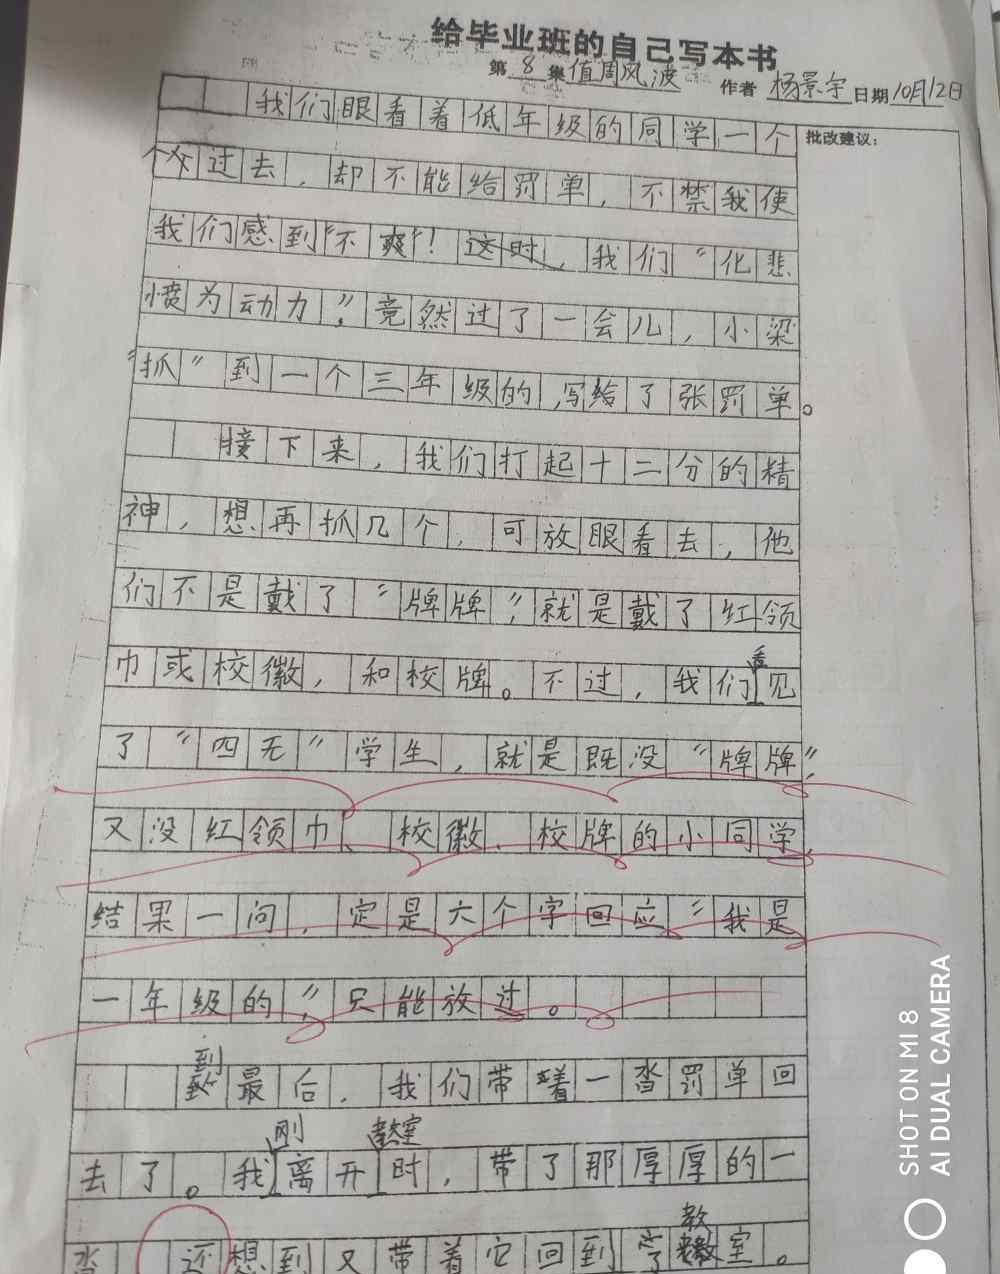 给毕业班的自己写本书
第 8 集 值周风波 作者 杨景宇 日期 10月12日
批改建议：
我们眼看着低年级的同学一个
个从过去，却不能给罚单，不禁我使
我们感到“不爽”！这时，我们“化悲
愤为动力”，竟然过了一会儿，小梁
“抓”到一个三年级的，写给了张罚单。
接下来，我们打起十二分的精
神，想再抓几个，可放眼看去，他
们不是戴了“牌牌”，就是戴了红领
巾或校徽，和校牌。不过，我们看见
了“四无”学生，就是既没“牌牌”，
又没红领巾、校徽、校牌的小同学，
结果一问，定是六个字回应“我是
一年级的”，只能放过。
到最后，我们带着一沓罚单回
去了。我刚离开教室时，带了那厚厚的一
沓，还想到又带着它回到教室。
SHOT ON MI 8
AI DUAL CAMERA